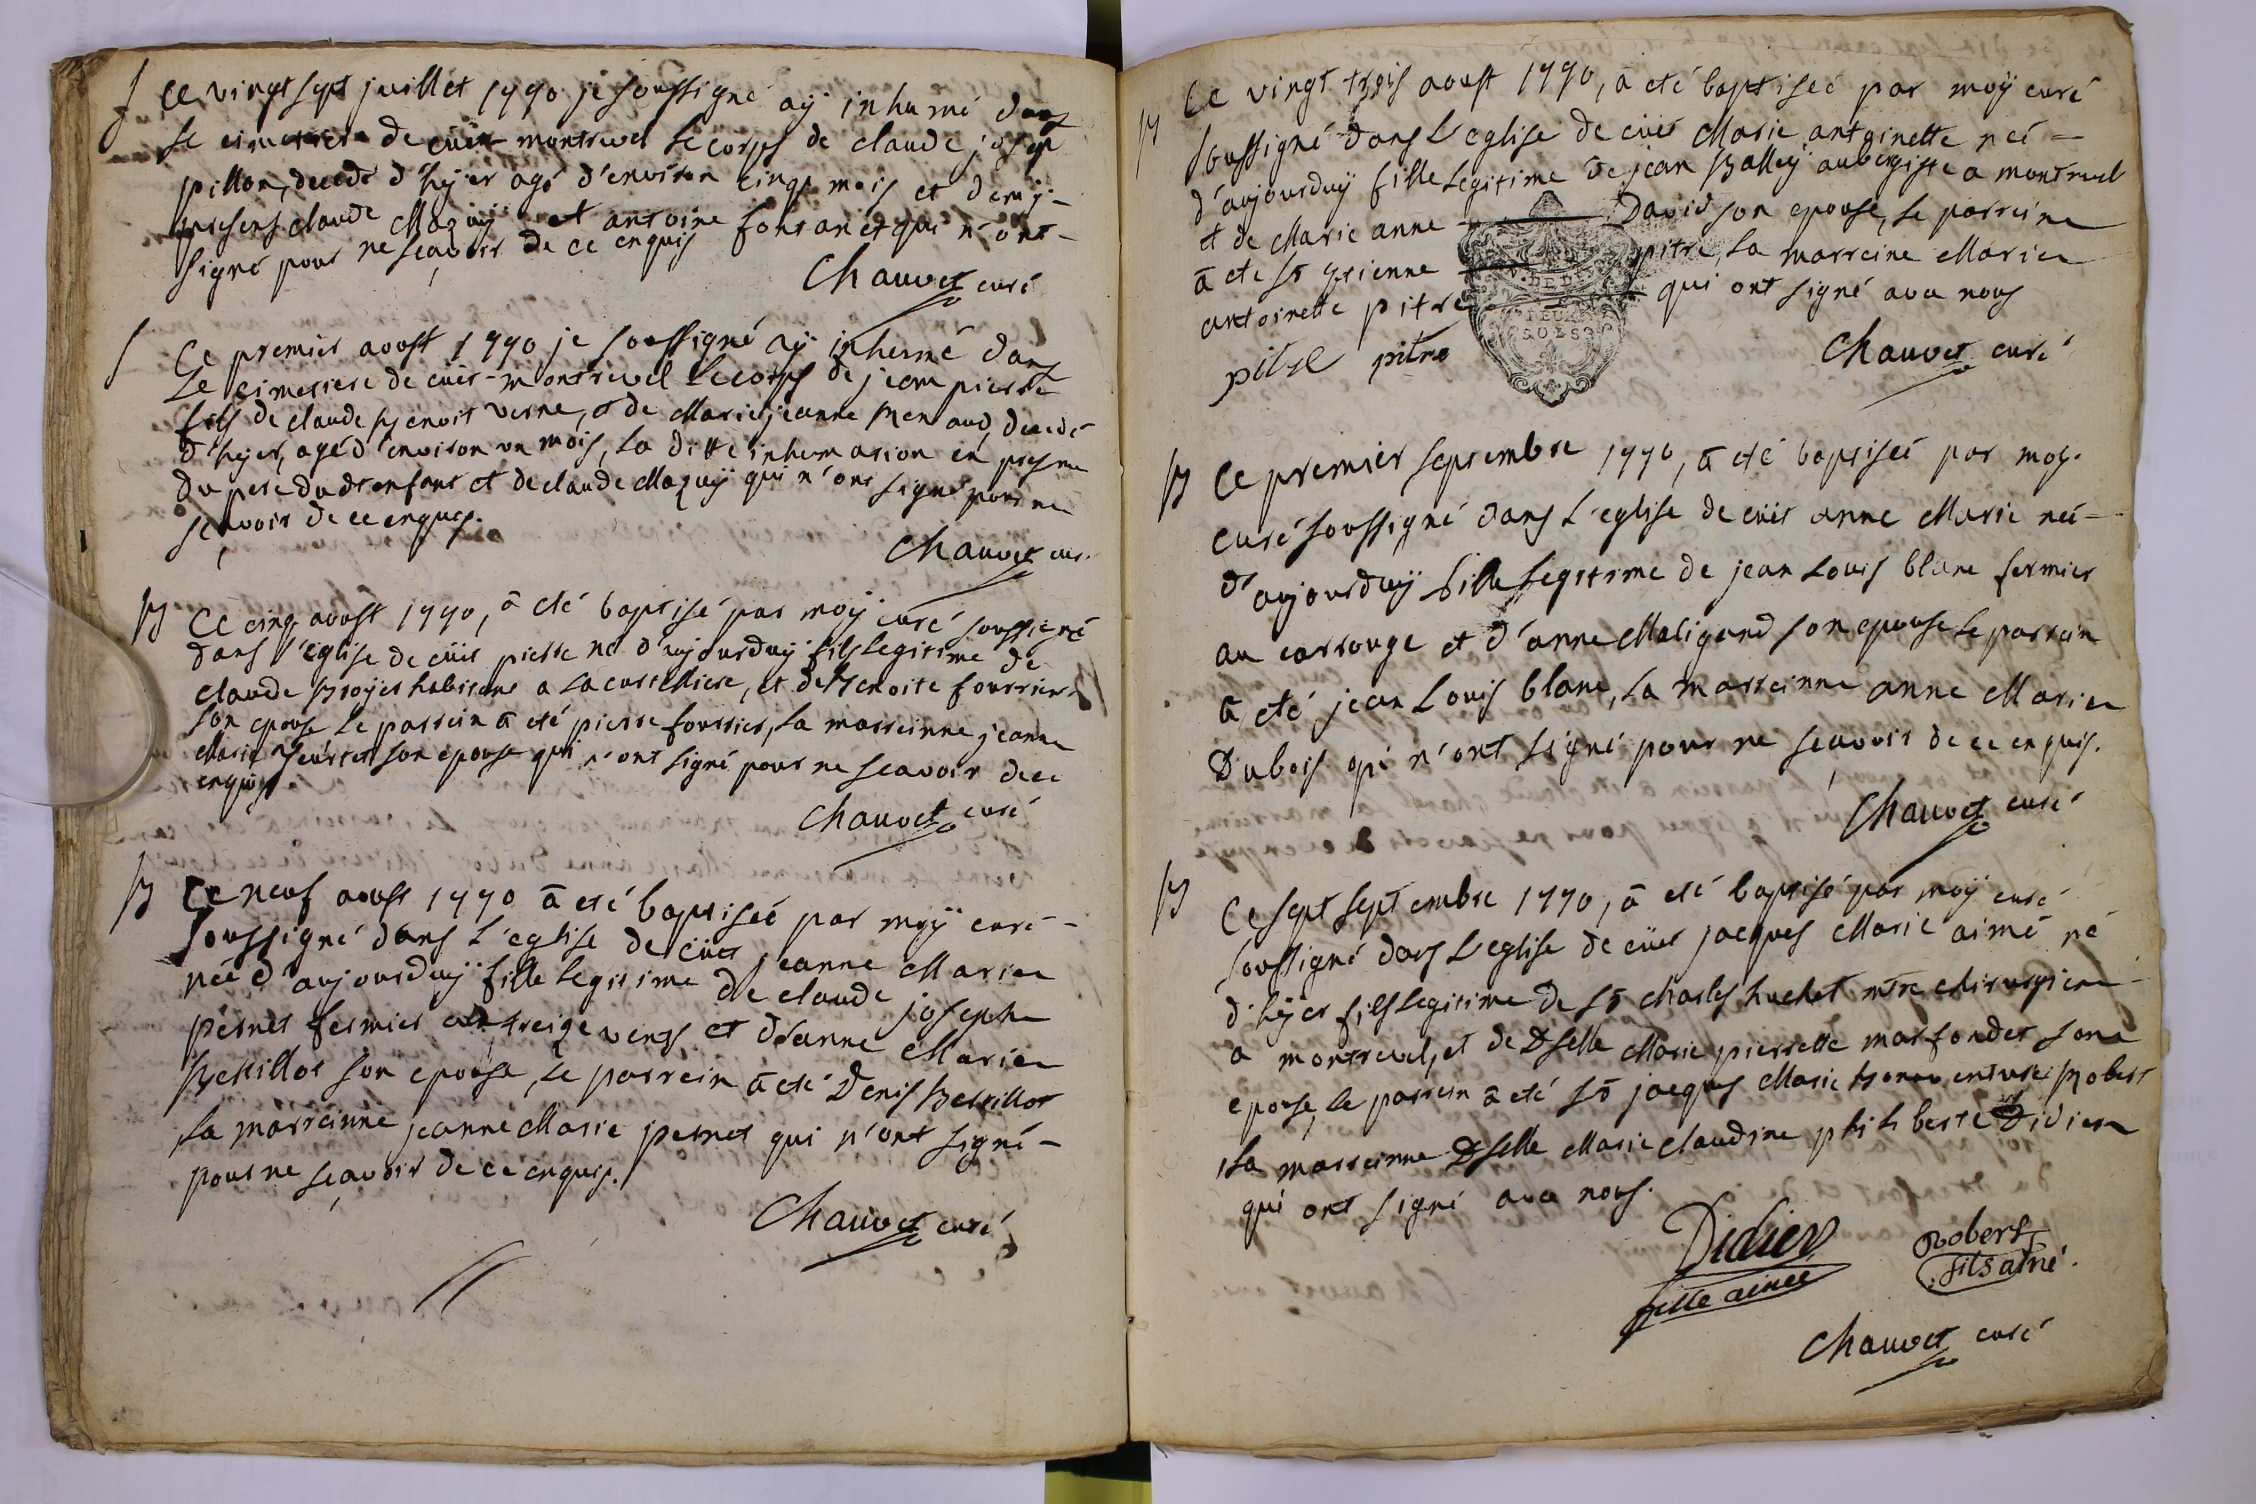 S Ce vingt sept juillet 1770 je soussigné aÿ inhumé dans
le cimetiere de cuët-montrevel le corps de claude joseph
pillon, decedé d'hÿer agé d'environ cinq mois et demÿ-
presens claude Mazuÿ et antoine fontanet qui n'ont-
signé pour ne scavoir de ce enquis
Chauvet curé
S Ce premier aoust 1770 je soussigné aÿ inhumé dans
le cimetiere de cuët-montrevel le corps de jean pierre
fils de claude Benoit verne, et de Marie jeanne Renaud, decedé
d'hyer, agé d'environ un mois, la ditte inhumation en presence
du pere dudt enfant et de claude Mazuÿ qui n'ont signé pour ne
scavoir de ce enquis.
Chauvet cur.
B Ce cinq aoust 1770, à eté baptisé par moÿ curé soussigné
dans l'eglise de cuët pierre né d'aujourduÿ fils legitime de
claude Broÿer habitant a la curtelliere, et de Benoite fourrier
son epouse le parrein à eté pierre fourrier, la marreinne jeanne
Marie son epouse qui n'ont signé pour ne scavoir de ce
enquis
Chauvet curé
B Ce neuf aoust 1770 à eté baptiseé par moÿ curé-
soussigné dans l'eglise de cuët jeanne Marie
neé d'aujourduÿ fille legitime de claude joseph
pernet fermier en treize vents et d'anne Marie
Berrillot son epouse, le parrein à eté Denis Berrillot
la marreinne jeanne Marie pernet qui n'ont signé-
pour ne scavoir de ce enquis.
Chauvet curé
B Ce vingt trois aoust 1770, à eté baptiseé par moÿ curé
soussigné dans L'eglise de cuët Marie antoinette neé-
d'aujourduÿ fille legitime de jean Balleÿ aubergiste a montrevel
et de Marie anne David son epouse, le parreine
à eté sr etienne pitre, la marreine Marie
antoinette pitre qui ont signé avec nous
pitre pitre
Chauvet curé
B Ce premier septembre 1770, à eté baptiseé par moy.
curé soussigné dans L'eglise de cuët anne Marie neé-
d'aujourduÿ fille legitime de jean Louis blanc fermier
au carrouge et d'anne Maligand son epouse le parrein
à eté jean Louis blanc, la marreinne anne Marie
Dubois qui n'ont signé pour ne scavoir de ce enquis.
Chauvet curé
B Ce sept septembre 1770, à eté baptisé par moÿ curé
soussigné dans L'eglise de cuët jacques Marie aimé né
d'hÿer fils legitime de sr charles huchet mtre chirurgien
a montrevel, et de Dselle Marie pierrette marfondet son
epouse, le parrein à eté sr jacques Marie bonaventure Robert
la marreinne Dselle Marie claudine philiberte Didier
qui ont signé avec nous.
Didier Robert
fille ainée fils aîné.
Chauvet curé